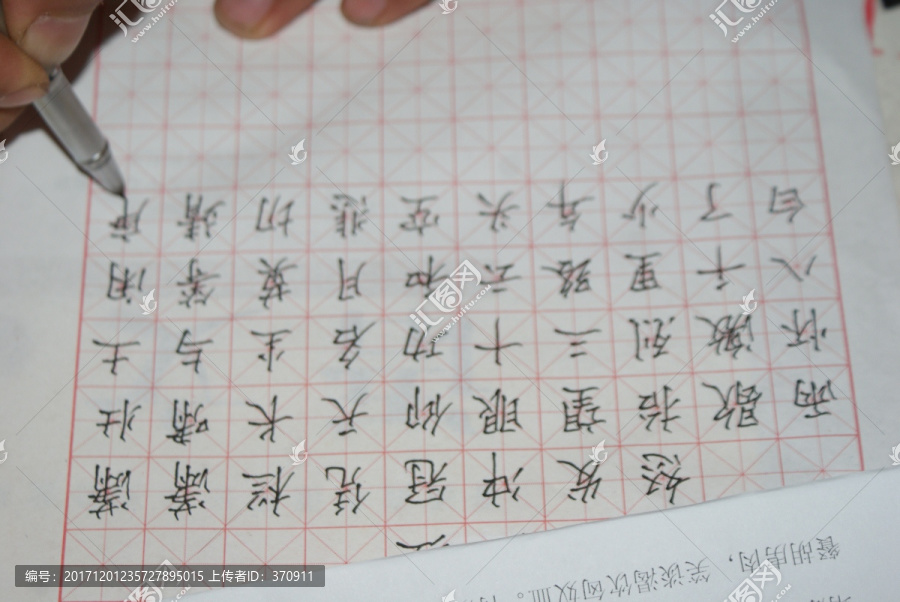 怒发冲冠凭栏潇潇
雨歇抬望眼仰天长啸壮
怀激烈三十功名尘与土
八千里路云和月莫等闲
白了少年头空悲切靖康
餐胡虏肉，笑谈渴饮匈奴血。
编号：20171201235727895015 上传者ID：370911
汇图网
www.huitu.com